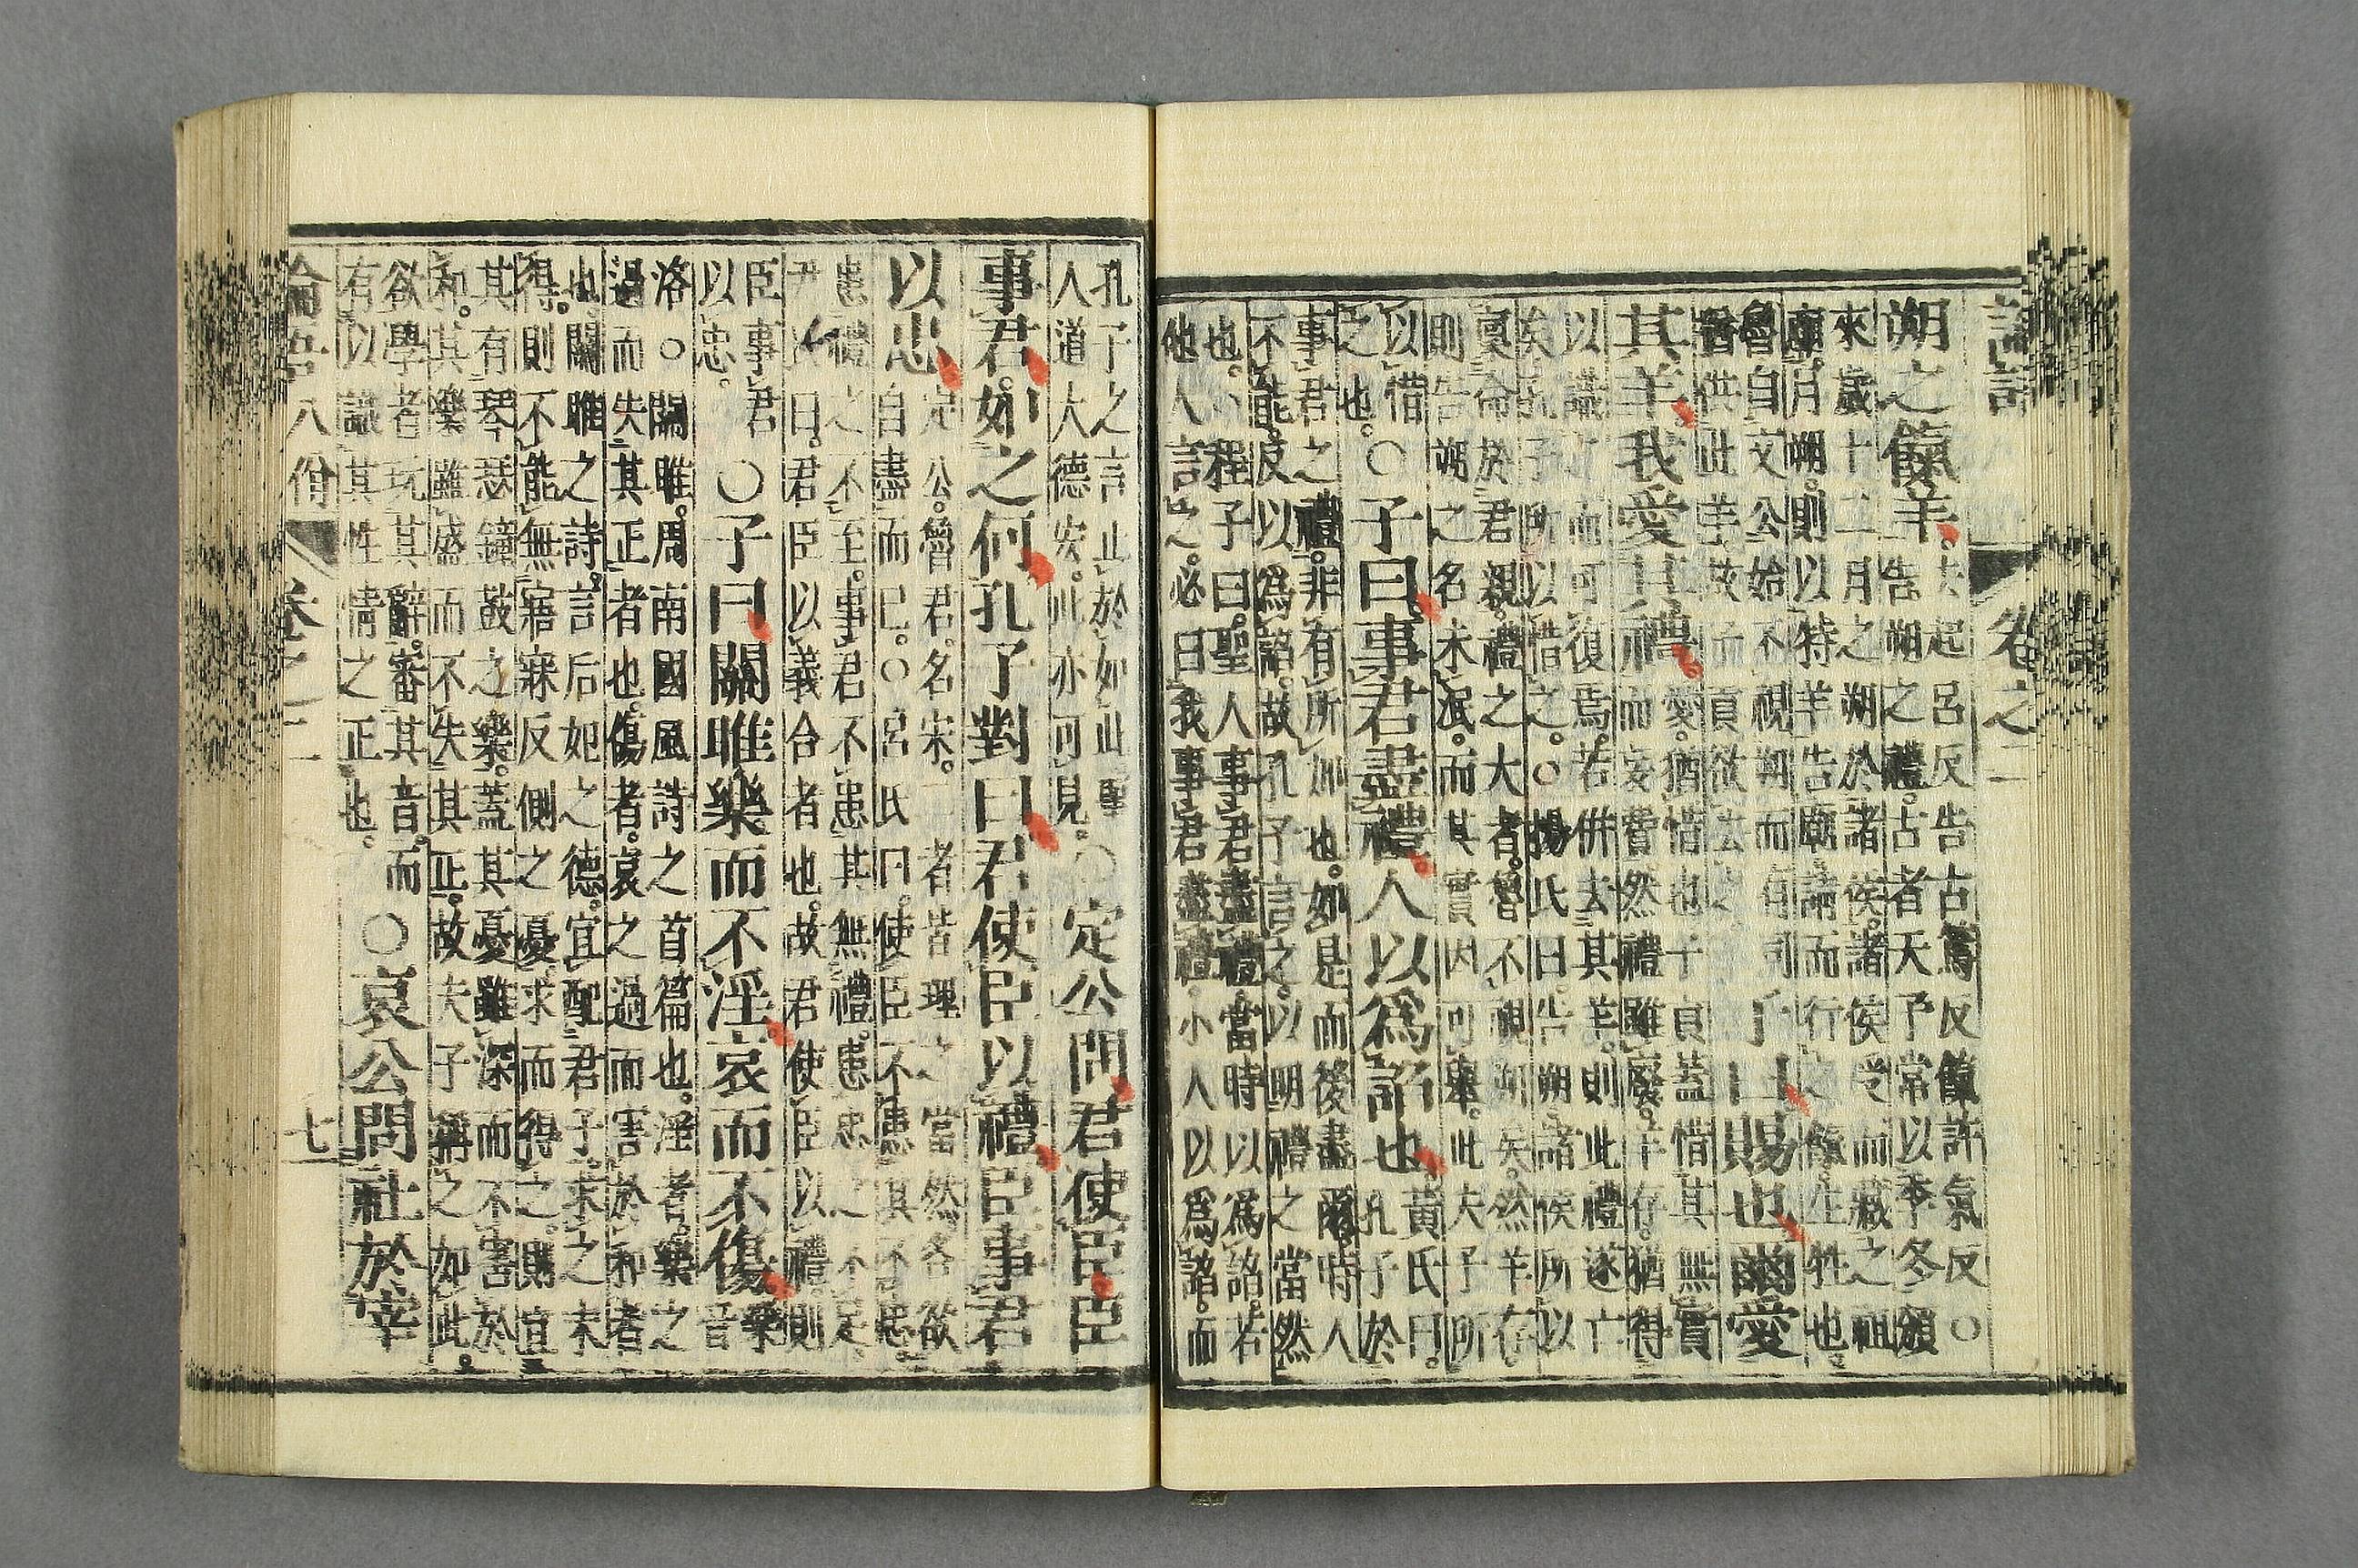 卷之二
朔之餼羊。
去起呂反告古篤反餼許氣反〇
告朔之禮。古者天子常以季冬頒
來歲十二月之朔於諸侯。諸侯受而藏之祖
廟。月朔。則以特羊告廟。請而行之。餼。生牲也。
魯自文公始不視朔而有司
猶供此羊。故子貢欲去之
子曰賜也爾愛
其羊。我愛其禮。
愛。猶惜也子貢蓋惜其無實
而妄費然禮雖廢。羊存。猶得
以識之而可復焉。若併去其羊。則此禮遂亡
矣孔子所以惜之。〇楊氏曰。告朔諸侯所以
稟命於君親。禮之大者。魯不視朔矣。然羊存。
則告朔之名未泯。而其實因可舉。此夫子所
以惜
之也。
〇子曰。事君盡禮。人以爲諂也
黃氏曰。
孔子於
事君之禮。非有所加也。如是而後盡爾。時人
不能。反以爲諂。故孔子言之。以明禮之當然
也。〇程子曰。聖人事君盡禮。當時以爲諂。若
他人言之。必曰我事君盡禮。小人以爲諂。而
孔子之言止於如此聖
人道大德宏。此亦可見。
〇定公問君使臣臣
事君。如之何孔子對曰君使臣以禮臣事君
以忠
定公。魯君。名宋。二者皆理之當然各欲
自盡而已。〇呂氏曰。使臣不患其不忠。
患禮之不至。事君不患其無禮。患忠之不足。
尹氏曰。君臣以義合者也。故君使臣以禮。則
臣事君
以忠。
〇子曰關雎樂而不淫哀而不傷
樂
音
洛。〇關雎。周南國風詩之首篇也。淫者樂之
過而失其正者也。傷者。哀之過而害於和者
也。關雎之詩。言后妃之德。宜配君子。求之未
得。則不能無寤寐反側之憂。求而得之。則宜
其有琴瑟鐘鼓之樂。蓋其憂雖深而不害於
和。其樂雖盛而不失其正。故夫子稱之如此。
欲學者玩其辭。審其音。而
有以識其性情之正也。
〇哀公問社於宰
論語八佾 卷之二 七